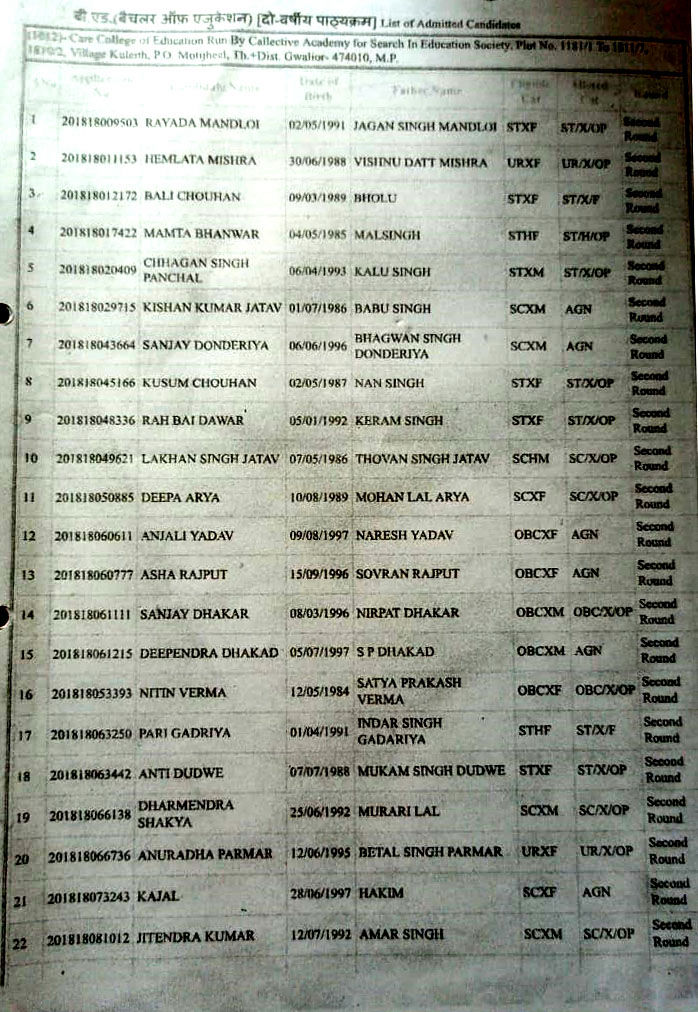 बी एड.(बैचलर ऑफ एजुकेशन) [दो-वर्षीय पाठ्यक्रम] List of Admitted Candidates
(1812)- Care College of Education Run By Collective Academy for Search In Education Society, Plot No. 1181/1 To
Village Kulerth, P.O. Motijheel, Th.+Dist. Gwalior- 474010, M.P.
Date of Birth Father Name Round
1 201818009503 RAYADA MANDLOI 02/05/1991 JAGAN SINGH MANDLOI STXF ST/X/OP Second Round
2 201818011153 HEMLATA MISHRA 30/06/1988 VISHNU DATT MISHRA URXF UR/X/OP Second Round
3 201818012172 BALI CHOUHAN 09/03/1989 BHOLU STXF ST/X/F Second Round
4 201818017422 MAMTA BHANWAR 04/05/1985 MALSINGH STHF ST/H/OP Second Round
5 201818020409 CHHAGAN SINGH PANCHAL 06/04/1993 KALU SINGH STXM ST/X/OP Second Round
6 201818029715 KISHAN KUMAR JATAV 01/07/1986 BABU SINGH SCXM AGN Second Round
7 201818043664 SANJAY DONDERIYA 06/06/1996 BHAGWAN SINGH DONDERIYA SCXM AGN Second Round
8 201818045166 KUSUM CHOUHAN 02/05/1987 NAN SINGH STXF ST/X/OP Second Round
9 201818048336 RAH BAI DAWAR 05/01/1992 KERAM SINGH STXF ST/X/OP Second Round
10 201818049621 LAKHAN SINGH JATAV 07/05/1986 THOVAN SINGH JATAV SCHM SC/X/OP Second Round
11 201818050885 DEEPA ARYA 10/08/1989 MOHAN LAL ARYA SCXF SC/X/OP Second Round
12 201818060611 ANJALI YADAV 09/08/1997 NARESH YADAV OBCXF AGN Second Round
13 201818060777 ASHA RAJPUT 15/09/1996 SOVRAN RAJPUT OBCXF AGN Second Round
14 201818061111 SANJAY DHAKAR 08/03/1996 NIRPAT DHAKAR OBCXM OBC/X/OP Second Round
15 201818061215 DEEPENDRA DHAKAD 05/07/1997 S P DHAKAD OBCXM AGN Second Round
16 201818053393 NITIN VERMA 12/05/1984 SATYA PRAKASH VERMA OBCXF OBC/X/OP Second Round
17 201818063250 PARI GADRIYA 01/04/1991 INDAR SINGH GADARIYA STHF ST/X/F Second Round
18 201818063442 ANTI DUDWE 07/07/1988 MUKAM SINGH DUDWE STXF ST/X/OP Second Round
19 201818066138 DHARMENDRA SHAKYA 25/06/1992 MURARI LAL SCXM SC/X/OP Second Round
20 201818066736 ANURADHA PARMAR 12/06/1995 BETAL SINGH PARMAR URXF UR/X/OP Second Round
21 201818073243 KAJAL 28/06/1997 HAKIM SCXF AGN Second Round
22 201818081012 JITENDRA KUMAR 12/07/1992 AMAR SINGH SCXM SC/X/OP Second Round